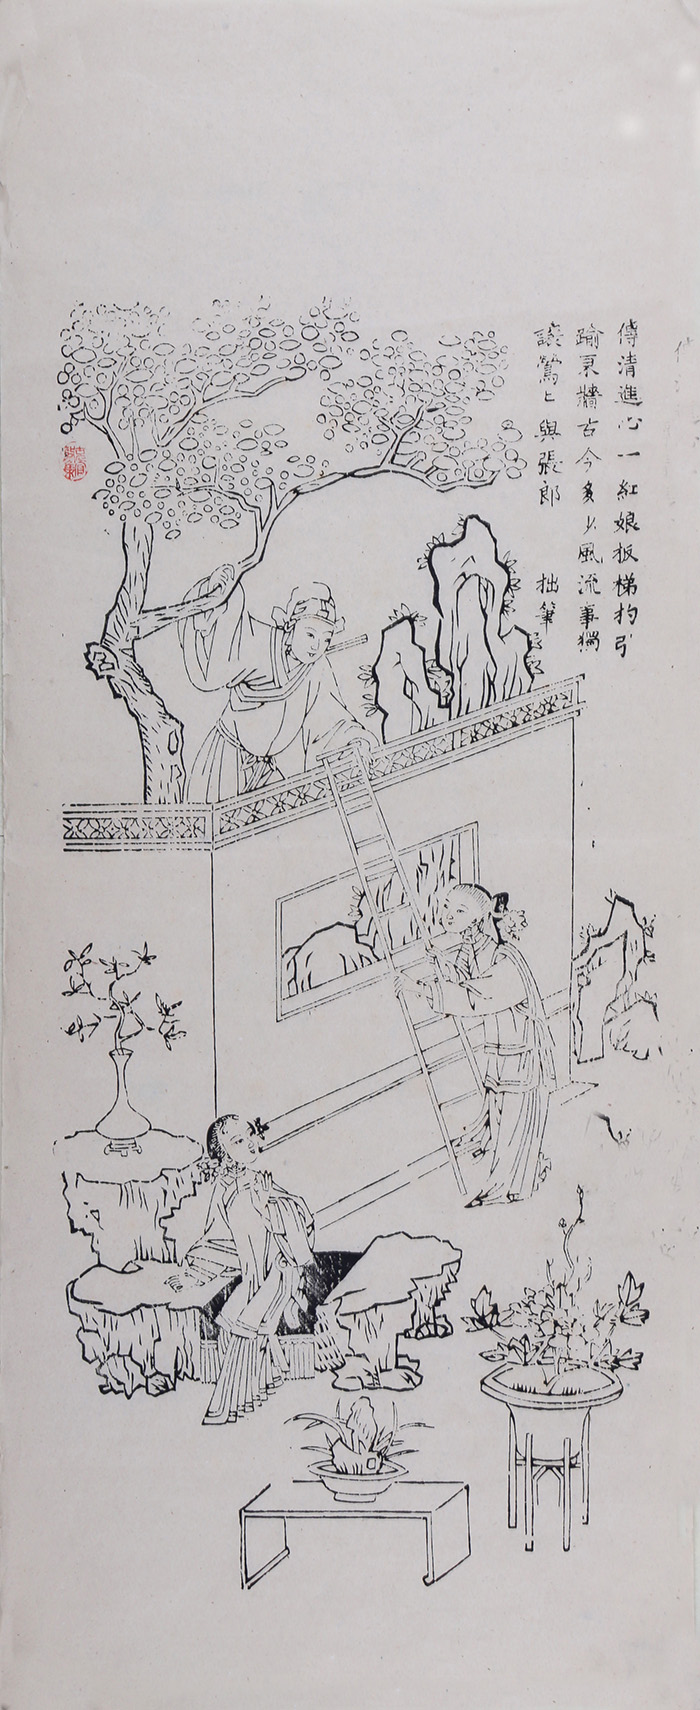 傳清進心一紅娘扳梯抅引
踰東牆古今多少風流事獨
讓鶯上與張郎 拙筆